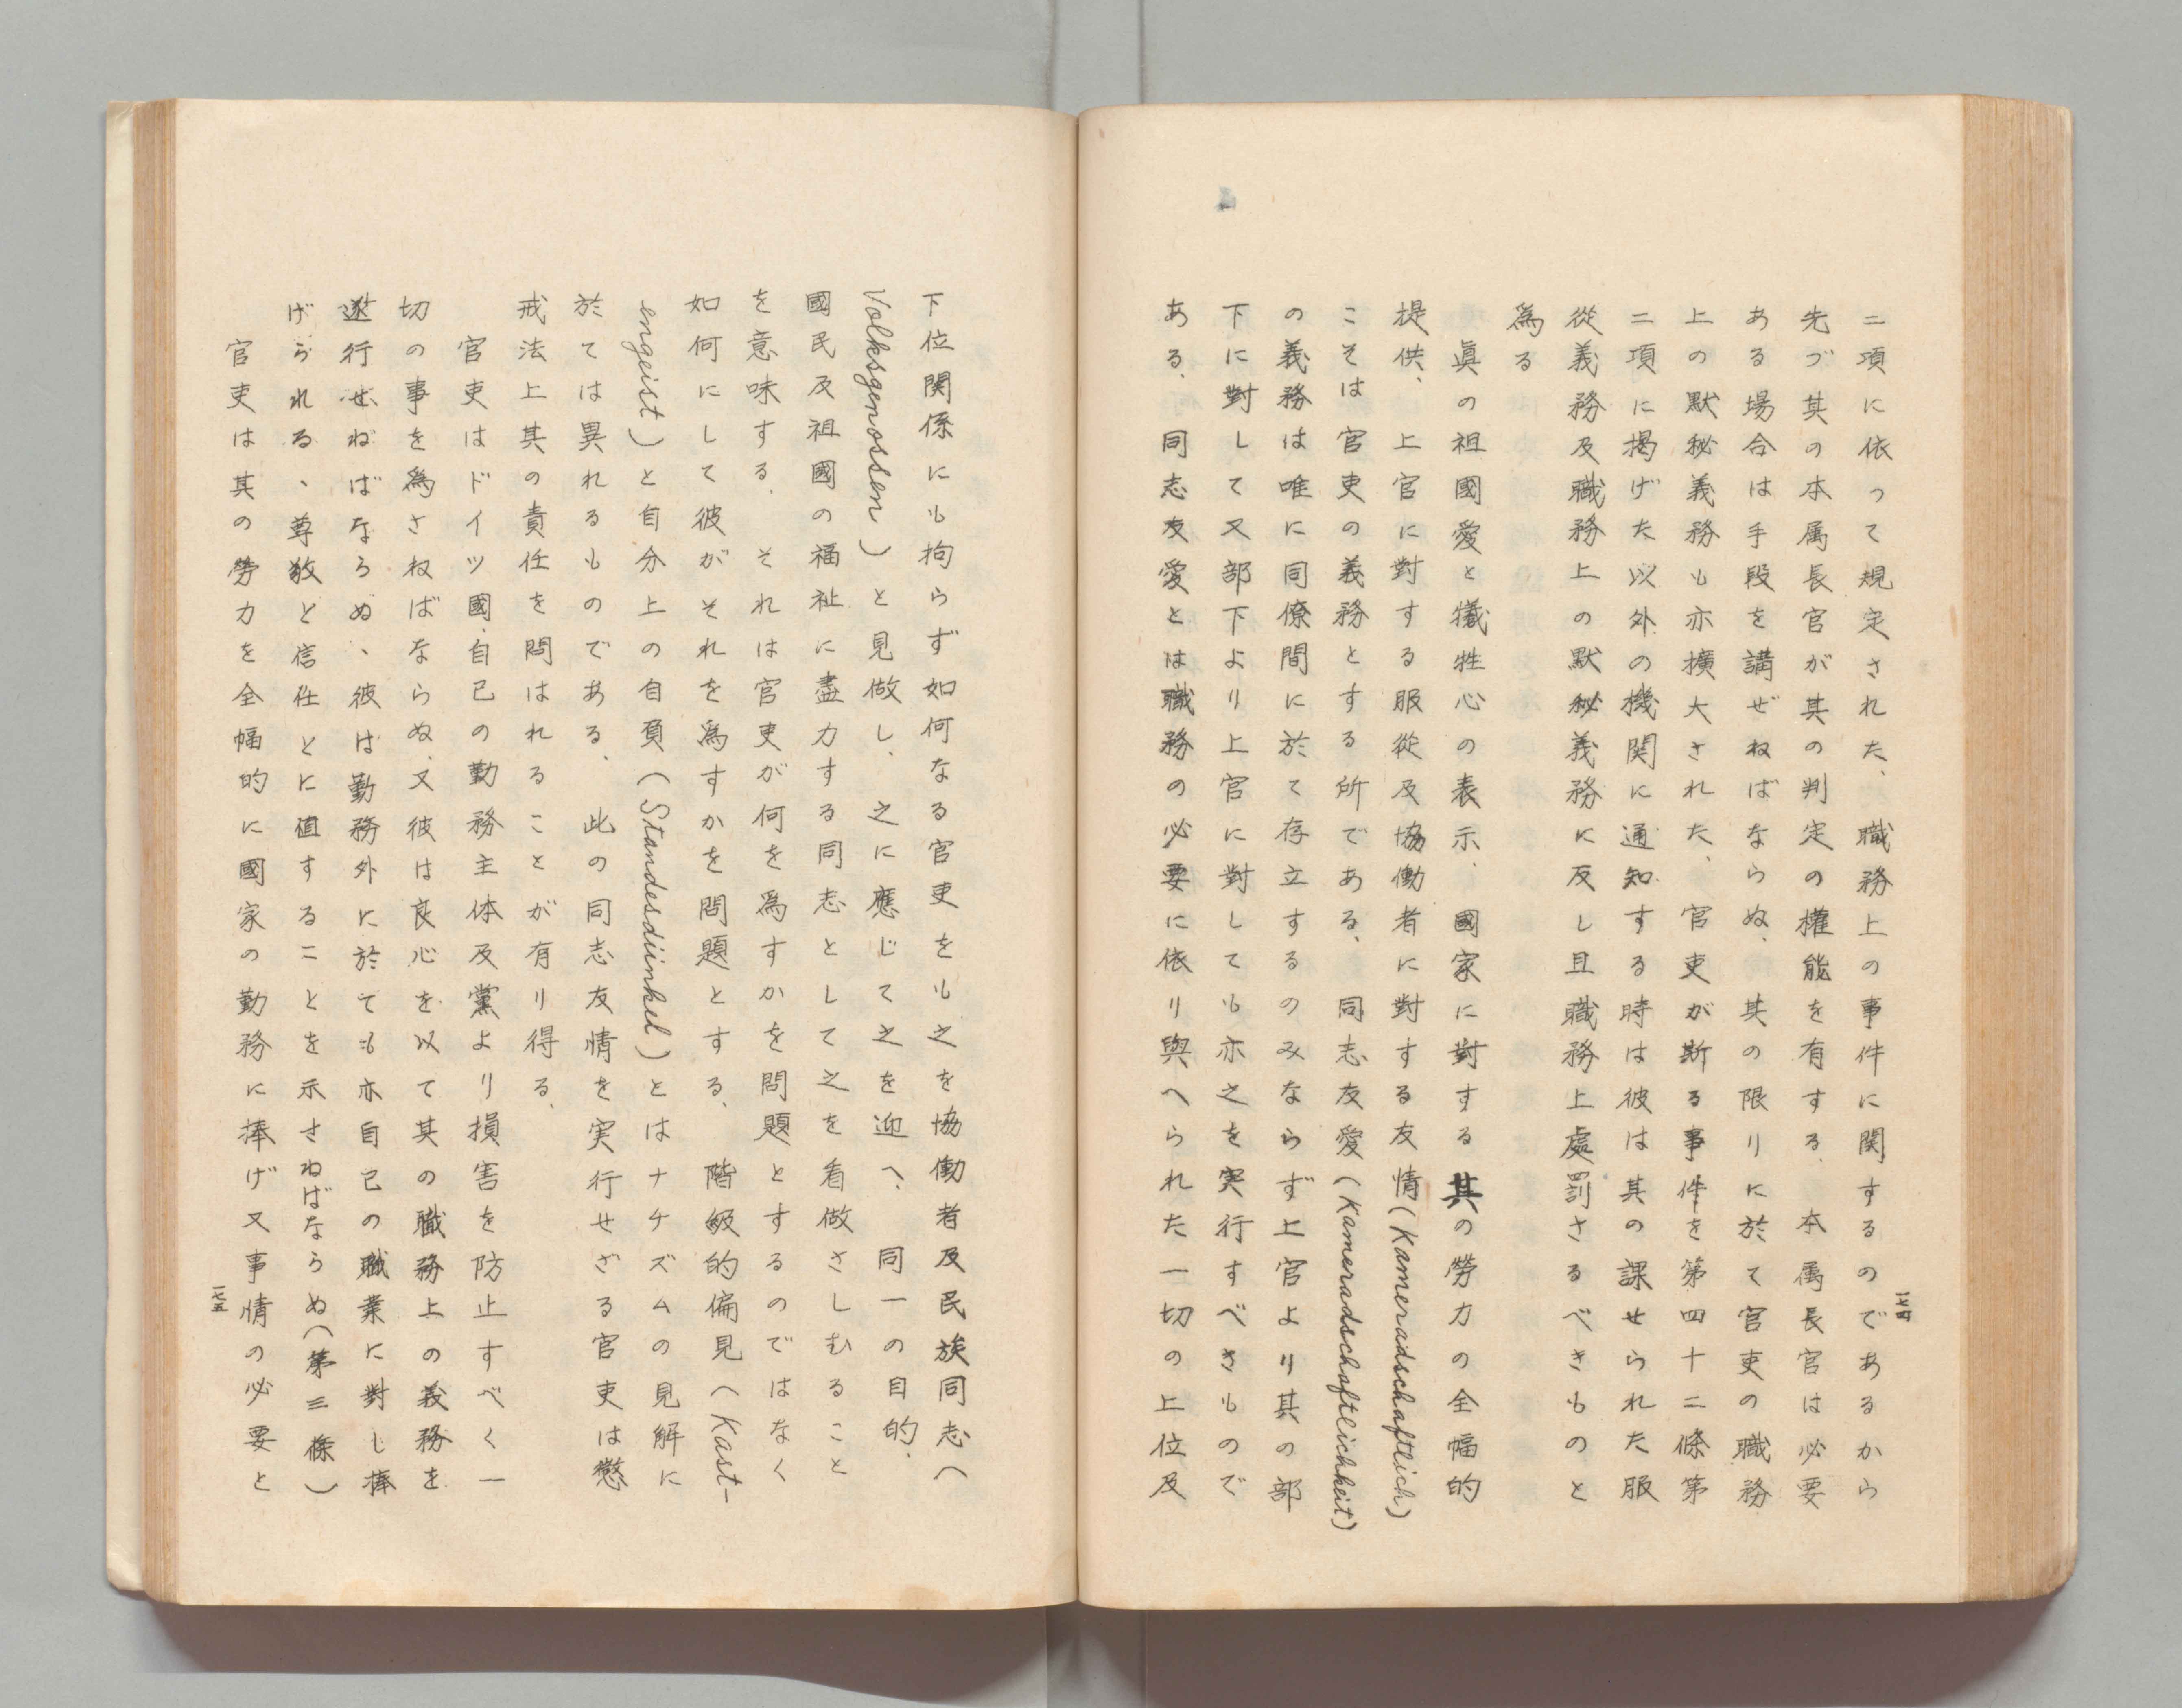 二項に依つて規定された、職務上の事件に関するのであるから
先づ其の本属長官が其の判定の權能を有する、本属長官は必要
ある場合は手段を講ぜねばならぬ、其の限りに於て官吏の職務
上の默秘義務も亦擴大された、官吏が斯る事件を第四十二條第
二項に揭げた以外の機関に通知する時は彼は其の課せられた服
從義務及職務上の默秘義務に反し且職務上處罰さるべきものと
爲る
眞の祖國愛と犠牲心の表示、國家に對する其の勞力の全幅的
提供、上官に對する服從及協働者に對する友情(Kameradschaftlich)
こそは官吏の義務とする所である、同志友愛(Kameradschaftlichkeit)
の義務は唯に同僚間に於て存立するのみならず上官より其の部
下に對して又部下より上官に對しても亦之を実行すべきもので
ある、同志友愛とは職務の必要に依り與へられた一切の上位及
一七四
下位関係にも拘らず如何なる官吏をも之を協働者及民族同志(
Volksgenossen)と見做し、之に應じて之を迎へ、同一の目的、
國民及祖國の福祉に盡力する同志として之を看做さしむること
を意味する、それは官吏が何を爲すかを問題とするのではなく
如何にして彼がそれを爲すかを問題とする、階級的偏見(Kast-
engeist)と自分上の自負(Standesdünkel)とはナチズムの見解に
於ては異れるものである、此の同志友情を実行せざる官吏は懲
戒法上其の責任を問はれることが有り得る、
官吏はドイツ國、自己の勤務主体及黨より損害を防止すべく一
切の事を爲さねばならぬ、又彼は良心を以て其の職務上の義務を
遂行せねばならぬ、彼は勤務外に於ても亦自己の職業に對し捧
げられる、尊敬と信任とに値することを示さねばならぬ(第三條)
官吏は其の勞力を全幅的に國家の勤務に捧げ又事情の必要と
一七五